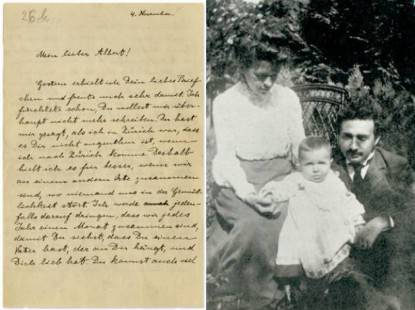 26 b
4. November
Mein lieber Albert!
Gestern erhielt ich Dein liebes Brief-
chen und freute mich sehr damit. Ich
fürchtete schon, Du wolltest mir über-
haupt nicht mehr schreiben. Du hast
mir gesagt, als ich in Zürich war, dass
es Dir nicht angenehm ist, wenn
ich nach Zürich komme. Deshalb
halt ich es für besser, wenn wir
an einem andern Orte zusammen
sind, wo niemand uns in der Gemüt-
lichkeit stört. Ich werde auch jeden-
falls darauf dringen, dass wir jedes
Jahr einen Monat zusammen sind,
damit Du siehst, dass Du einen
Vater hast, der an Dir hängt, und
Dich lieb hat. Du kannst auch viel